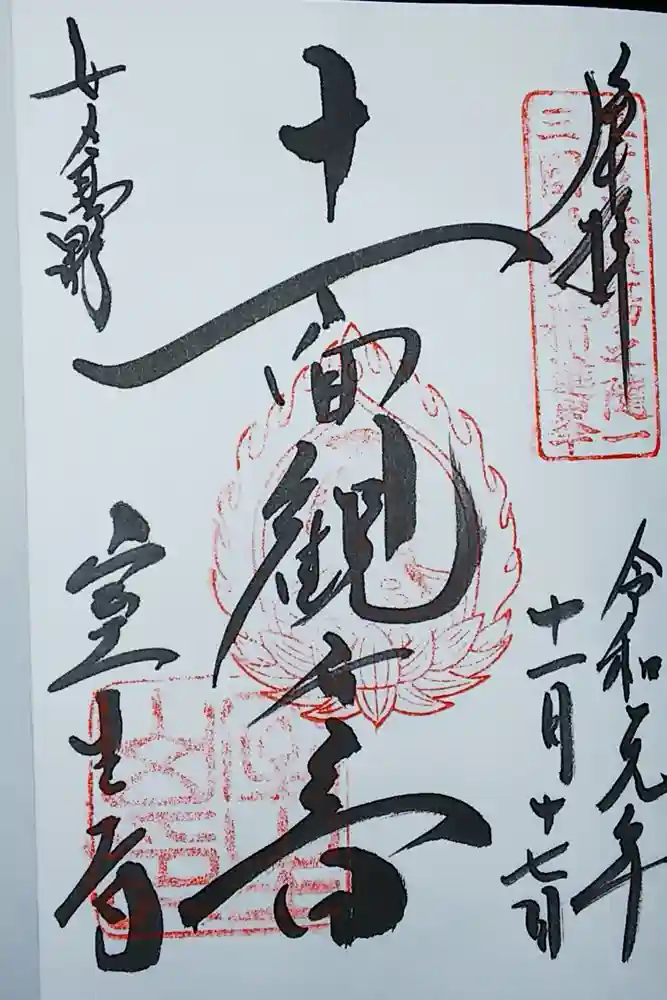 奉拝
令和元年
十一月十七日
十一面観世音
女人高野
室生寺